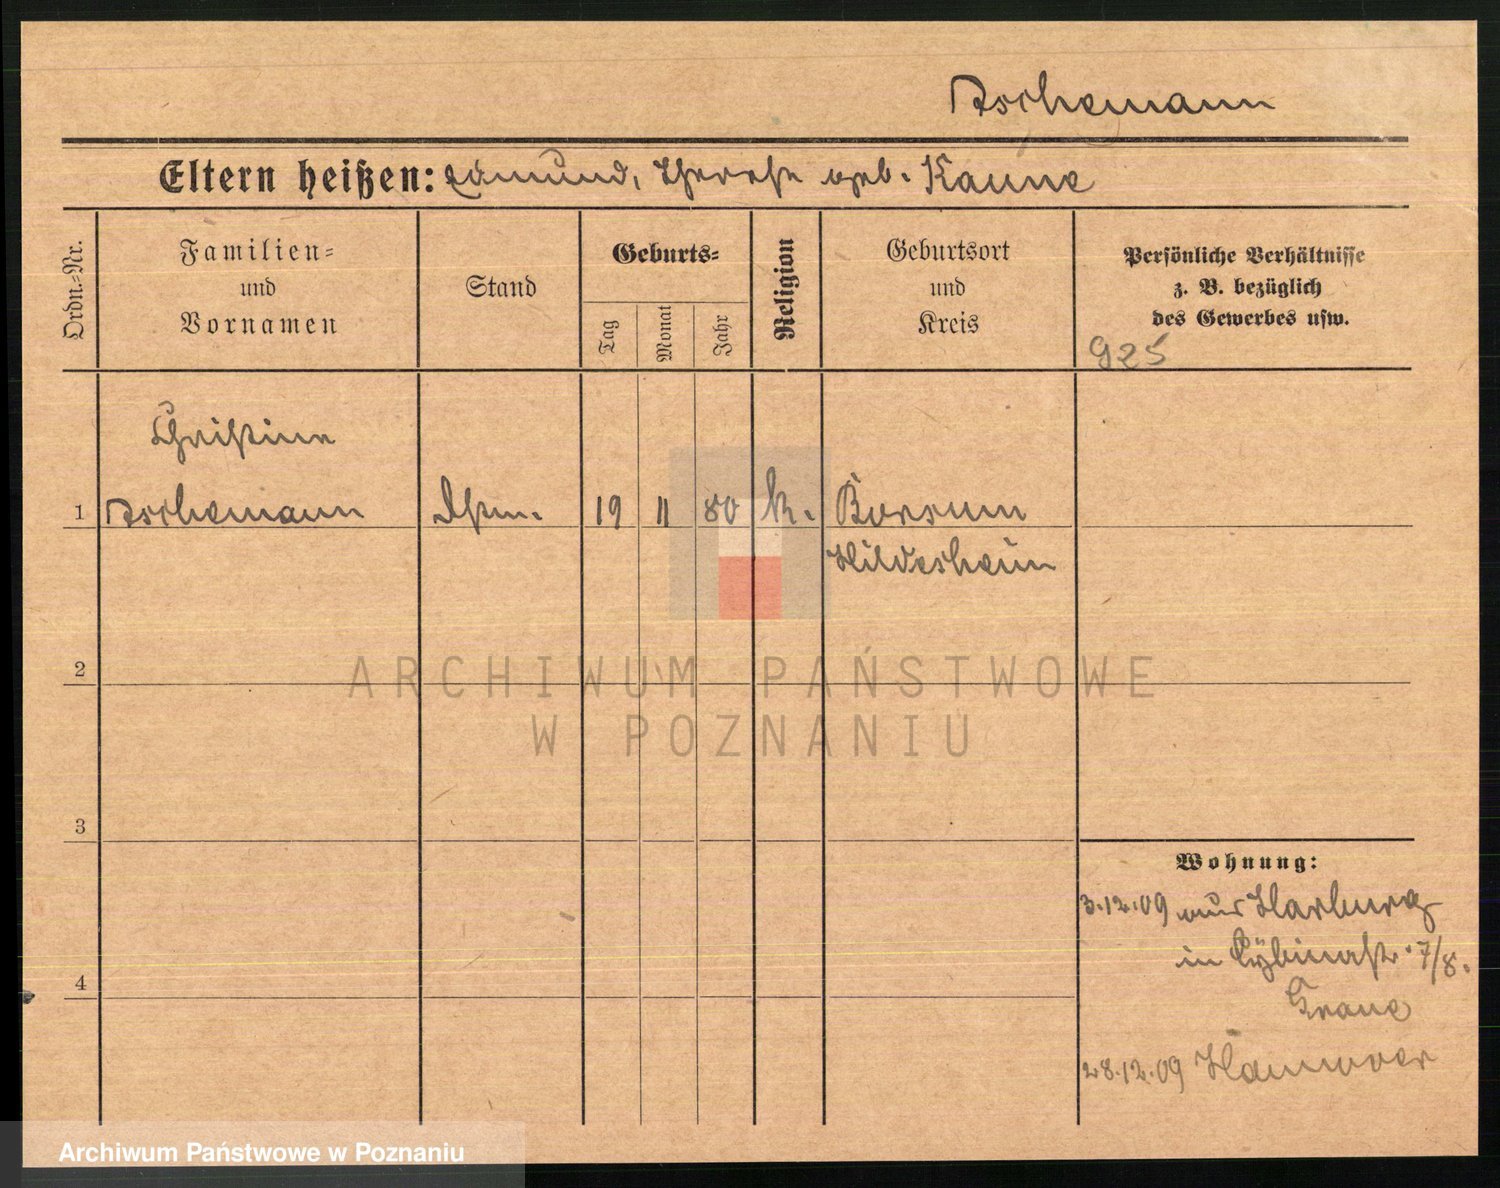 Aschemann
Eltern heißen: Edmund, Therese geb. Kaune
Ordn.-Nr.
Familien-
und
Vornamen
Stand
Geburts-
Tag
Monat
Jahr
Religion
Geburtsort
und
Kreis
Persönliche Verhältnisse
z. B. bezüglich
des Gewerbes usw.
925
Christine
1 Aschemann 19 11 80 k. Borsum
Hildesheim
2
3
4
Wohnung:
3.12.09 aus Harburg
in 7/8.
28.12.09 Hannover
ARCHIWUM PAŃSTWOWE
W POZNANIU
Archiwum Państwowe w Poznaniu